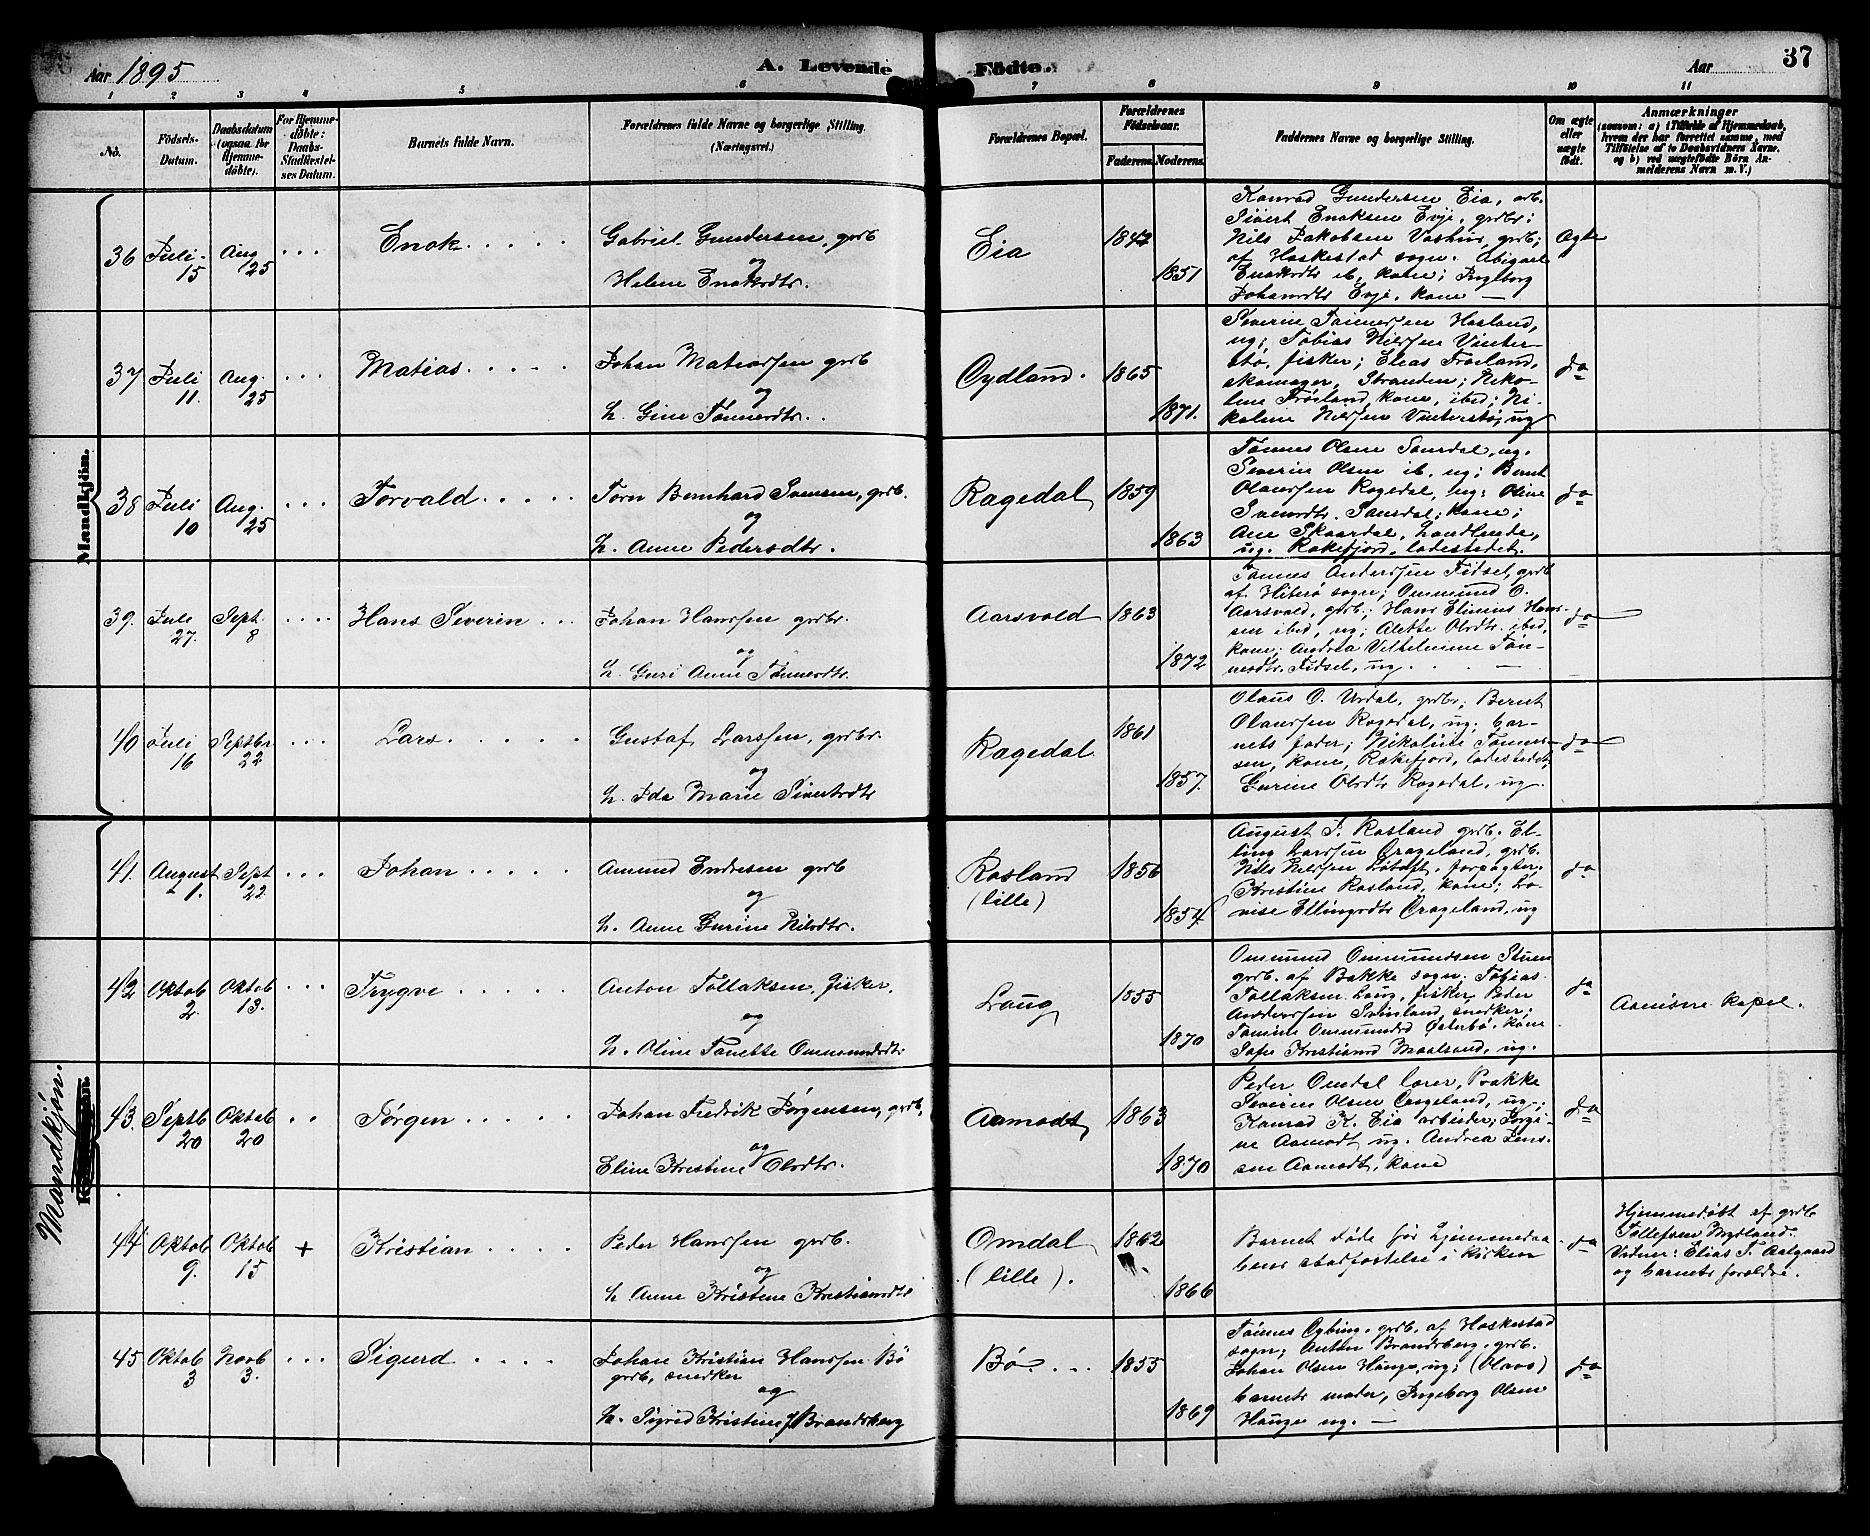 Aar 1895
A. Levende Födte.
Aar
37
1 2 3 4 5 6 7 8 9 10 11
No.
Födsels-
Datum.
Daabsdatum
(ogsaa for
Hjemme-
döbte).
For Hjemme-
döbte:
Daabs-
Stadfæstel-
ses Datum.
Barnets fulde Navn.
Forældrenes fulde Navne og borgerlige Stilling.
(Næringsvei.)
Forældrenes Bopæl.
Forældrenes
Födselsaar.
Faderens. Moderens.
Faddernes Navne og borgerlige Stilling.
Om ægte
eller
uægte
födt.
Anmærkninger
(saasom: a) i Tilfælde af Hjemmedaab,
hvem der har forrettet samme, med
Tilföielse af to Daabsvidners Navne.
og b) ved uægtefödte Börn An-
melderens Navn m. V.)
Mandkjön.
36 Juli 15 Aug 25 Enok
Gabriel Gundersen, grdb
og
Helene Enoksdtr.
Eia 1847 1851
Konrad Gundersen Eia, arb.
Sivert Enoksen Evje, grdbr;
Nils Jakobsen Vashus, grdb;
af Heskestad sogn. Abigael
Enoksdtr ib, kone; Ingeborg
Johansdtr Evje, kone —
Ægte
37 Juli 11. Aug. 25 Matias
Johan Matiassen grdb
og
h. Gine Tønnesdtr.
Oydland. 1865 1871.
Severine Tønnessen Hasland,
ug; Tobias Nilssen Vinter-
stø, fisker; Elias Frøiland,
skomager, Stranden; Niko-
line Frøiland, kone, ibid; Ni-
koline Nilssen Vinterstø, ug
do
38 Juli 10 Aug. 25 Torvald
Tørn Bernhard Svensen, grdb.
og
h. Anne Pedersdtr.
Ragedal 1859 1863
Tønnes Olsen Sansdal, ug.
Severin Olsen ib, ug; Bernt
Olaussen Rogedal, ug; Olive
Svensdtr. Sansdal, kone;
Ane Skaardal,
ug. Rækefjord, ladestedet.
do
39. Juli 27. Sept. 8 Hans Severin
Johan Hanssen grdbr.
og
h. Guri Anne Tønnesdtr.
Aarsvold 1863 1872
Tønnes Anderssen Fidsel, grdb
af Hiterø sogn; Ommund O.
Aarsvold, grdb; Hans Elinius Hans-
sen ibid, ug; Alette Olsdtr. ibid,
kone; Andrea Vilhelmine Tøn-
nesdtr. Fidsel, ug.
do
40 Juli 16 Septbr 22 Lars
Gustaf Larssen, grdbr.
og
h. Ida Marie Sivertsdtr
Ragedal 1861 1857.
Olaus O. Urdal, grdbr; Bernt
Olaussen Rogedal, ug; bar-
nets fader; Nikoline Tønnes-
sen, kone, Rækefjord, ladestedet;
Gurine Olsdtr Rogedal, ug.
do
Mandkjøn.
41. August 1. Sept 22 Johan
Amund Endresen grdb
og
h. Anne Gurine Nilsdtr.
Rosland
(lille)
1856 1854
August J. Rosland grdb. El-
ling Larssen Drageland, grdb.
Nils Nilssen Løtoft, forpagter;
Kristine Rosland, kone; Lo-
vise Ellingsdtr Drageland, ug
do
42 Oktob 2. Oktob 13. Trygve
Anton Tollaksen, fisker.
og
h. Oline Tonette Ommundsdtr
Laug 1855 1870
Ommund Ommundsen Stuen
grdb. af Bakke sogn; Tobias
Tollaksen Laug, fisker, Peder
Anderssen Svinland, snedker;
Tomine Ommundsd Østebø, kone
Sofie Kristiansd Maalsand, ug.
do
Aamisne kapel.
43. Septb 20 Oktob 20 Jørgen
Johan Fredrik Jørgensen, grdb,
og
Eline Kristine Olsdtr.
Aamodt, 1863 1870
Peder Omdal lærer, Bakke
Severin Olsen Drageland, ug.;
Konrad K. Eia arbeider; Jorgi-
ne Aamodt, ug. Andrea Jens-
sen Aamodt, kone
do
44 Oktob 9. Oktob 15 + Kristian
Peder Hanssen grdb.
og
h Anne Kristine Kristiansdtr
Omdal
(lille).
1862 1866
Barnet døde før hjemmedaa
bens stadfæstelse i kirken
do
Hjemmedøbt af grdb
Tollefsen Mydland.
Vidner: Elias T. Aalgaard
og barnets forældre.
45 Oktob 3 Novb 3. Sigurd
Johan Kristian Hanssen Bø
grdb, snedker
og
h. Sigrid Kristine f. Brandsberg
Bø 1855 1869
Tønnes Eybing, grdb. af Heskestad
sogn; Anton Brandsberg, grdb.
Johan Olsen Hauge, ug; (Olava)
barnets moder, Ingeborg Olsen
Hauge ug. —
do